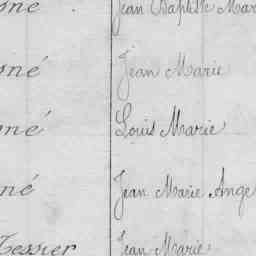 né Jean Baptiste Mar
né Jean Marie
né Louis Marie
né Jean Marie Ange
Tessier Jean Marie